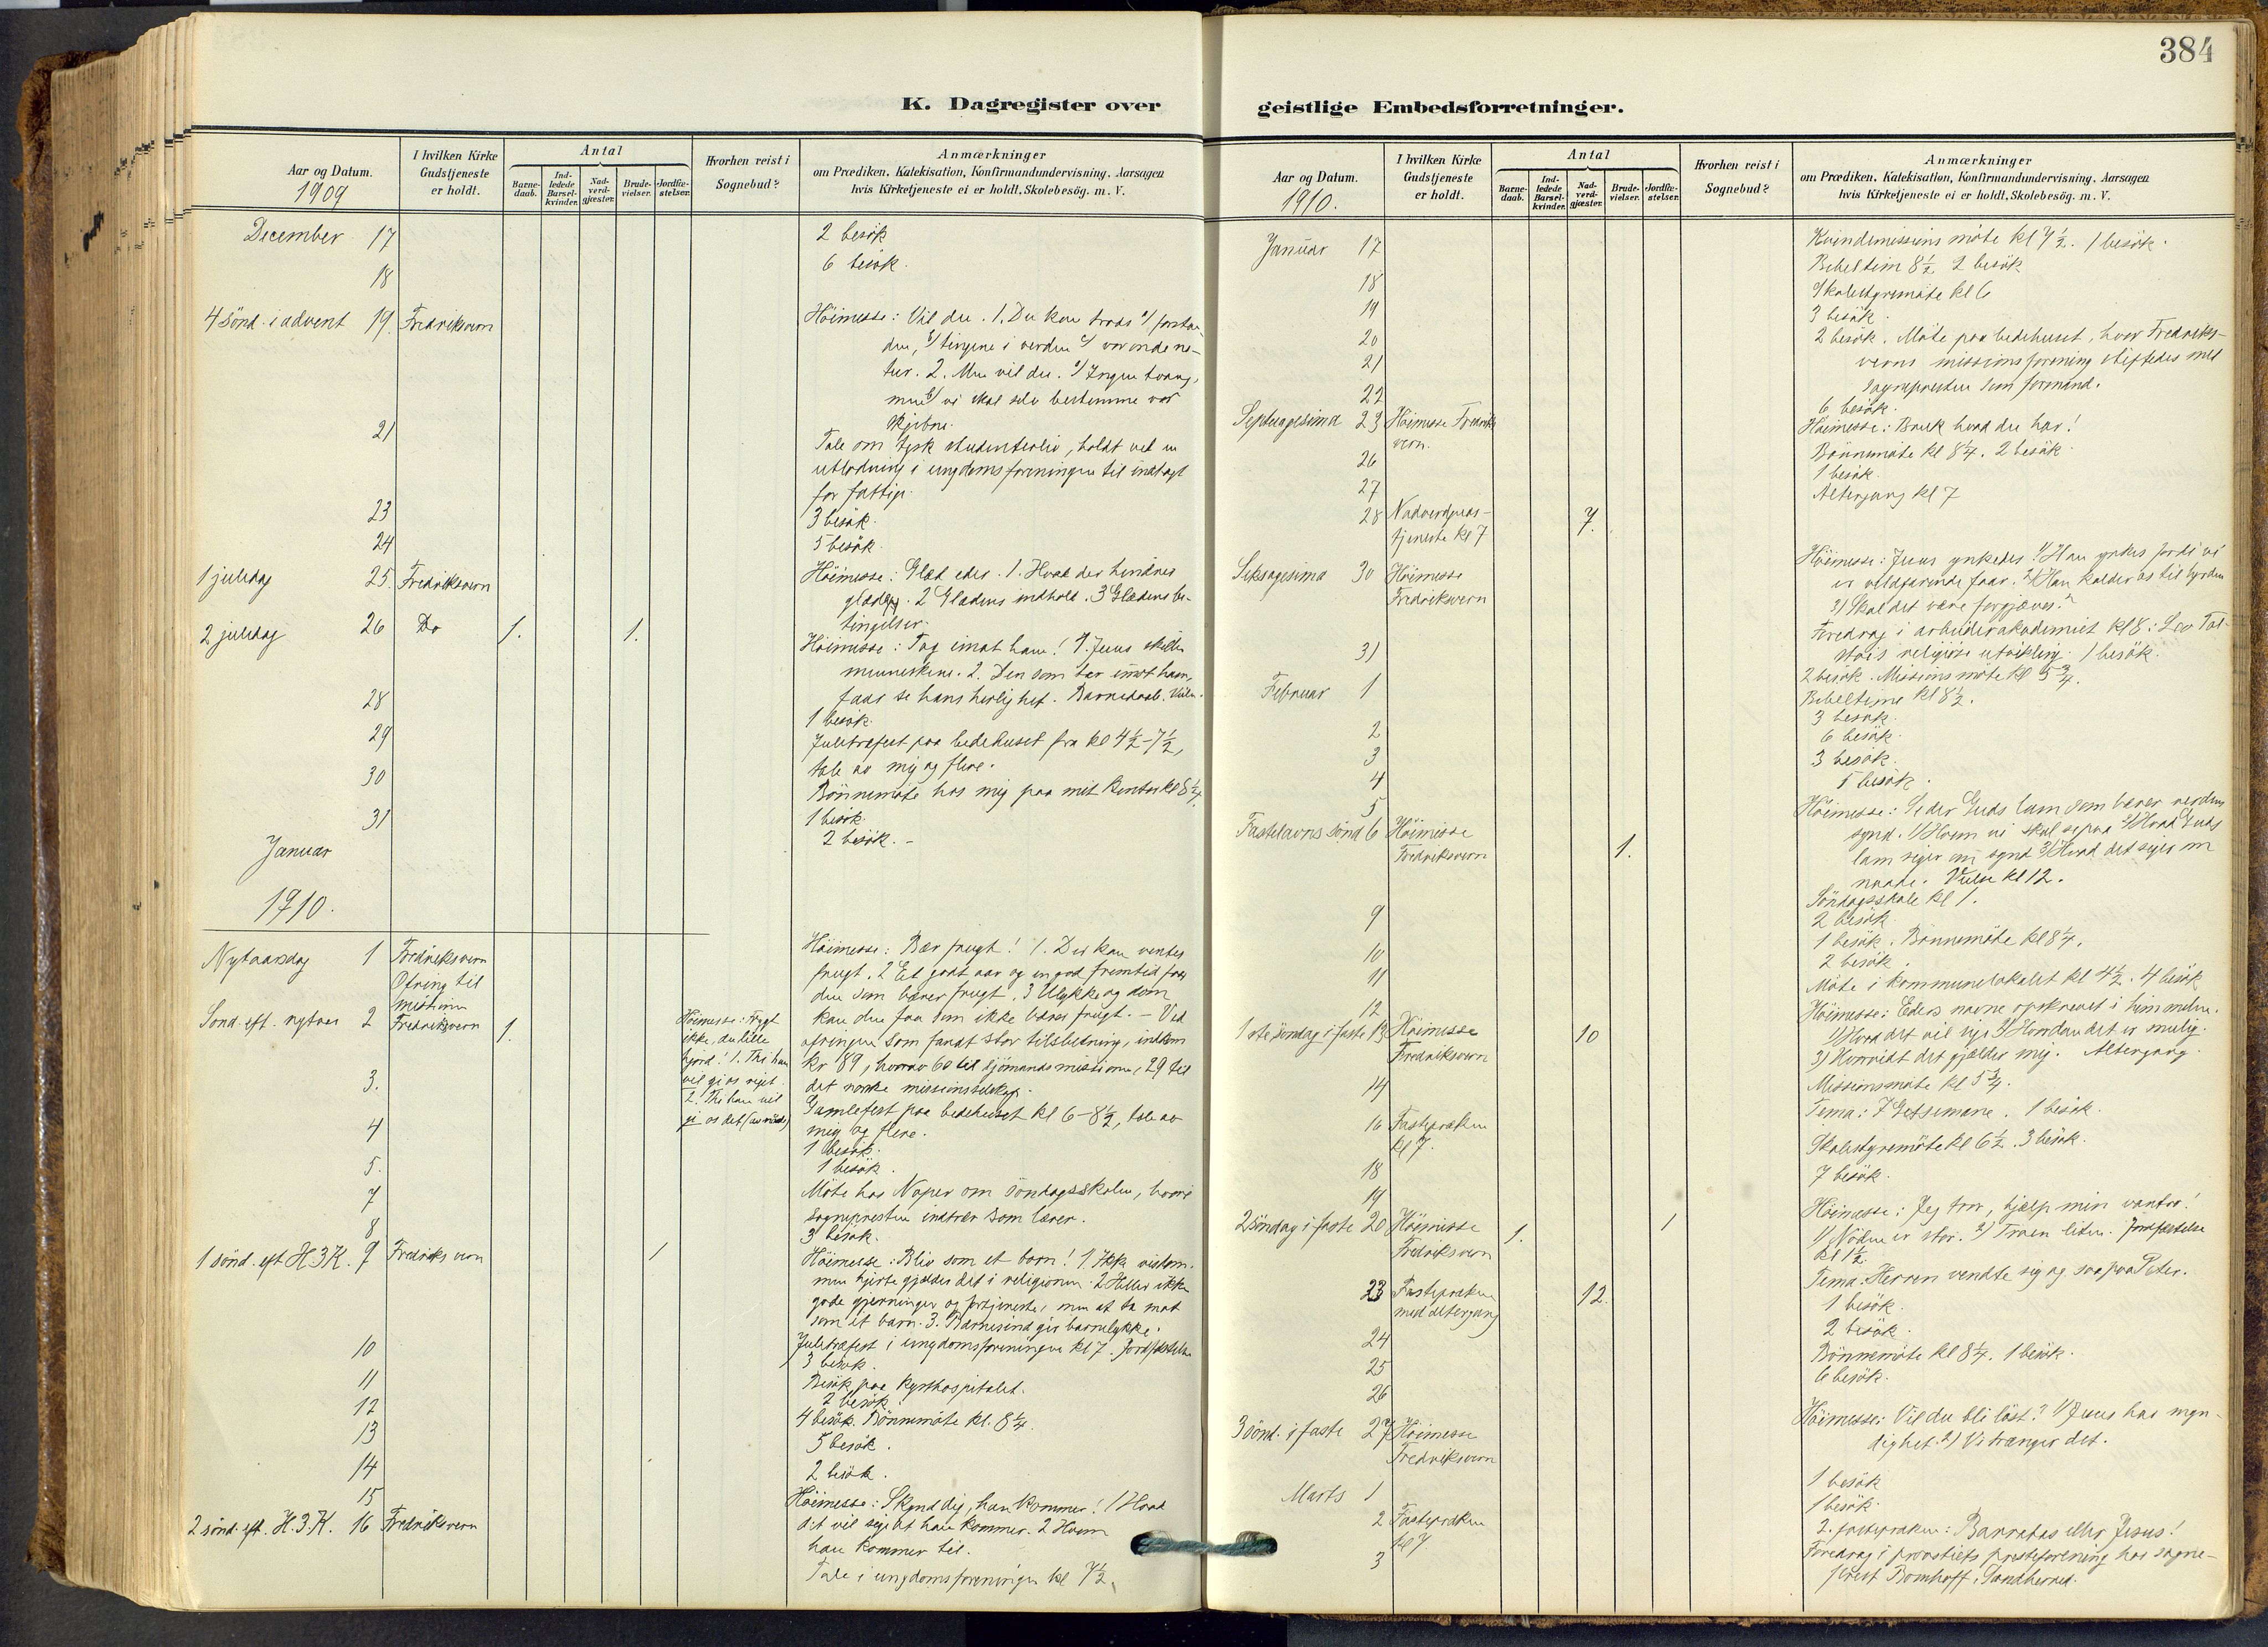 384
K. Dagregister over
geistlige Embedsforretninger.
Aar og Datum.
1909
I hvilken Kirke
Gudstjeneste
er holdt.
Antal
Barne-
daab.
Ind-
ledede
Barsel-
kvinder.
Nad-
verd-
gjæster.
Brude-
vielser.
Jordfæ-
stelser.
Hvorhen reist i
Sognebud?
Anmærkninger
om Prædiken, Katekisation, Konfirmandundervisning, Aarsagen
hvis Kirketjeneste ei er holdt, Skolebesög. m. V.
December 17 2 besök
18 6 besök.
4 sönd. i advent 19. Fredriksvern Höimesse: Vil du. 1. Du kan trods
tingene i verden
tur. 2. Men vil du. Ingen tvang,
men vi skal selv bestemme vor
skjebne.
21 Tale om tysk studenterliv, holdt ved en
utlodning i ungdomsforeningen til indtægt
for fattige.
23 3 besök.
24 5 besök.
1 juledag 25. Fredriksvern Höimesse: Glæd eder. 1. Hvad der hindrer
glæden. 2 Glædens indhold. 3 Glædens be-
tingelser.
2 juledag 26 Do 1. 1. Höimesse: Tag imot ham! 1. Jesus skiller
menneskene. 2. Den som tar imot ham,
faar se hans herlighet. Barnedaab. Vielse.
28 1 besök.
29 Juletræfest paa bedehuset fra kl 4½-7½,
tale av mig og flere.
30 Bönnemöte hos mig paa mit kontor kl 8¼.
1 besök.
31 2 besök. -
Januar
1910.
Nytaarsdag 1 Fredriksvern
Ofring til
missionen
Höimesse: Bær frugt! 1. Der kan ventes
frugt. 2 Et godt aar og en god fremtid faar
den som bærer frugt. 3 Ulykke og dom
kan den faa som ikke bærer frugt. - Ved
ofringen som fandt stor tilslutning, indkom
kr 89, hvorav 60 til sjömandsmissionen, 29 til
det norske missionsselskap.
Sönd. eft. nytaar 2 Fredriksvern 1.
Höimesse: Frygt
ikke, du lille
hjord! 1. Thi han
vil gi os riget.
2. Thi han vil
gi os det (av naade)
3. Gamlefest paa bedehuset kl 6-8½, tale av
mig og flere.
4 1 besök.
5. 1 besök.
7 Möte hos Noper om söndagsskolen, hvori
sognepresten indtrær som lærer.
8 3 besök.
1 sönd. eft H3K. 9 Fredriksvern 1 Höimesse: Bliv som et barn! 1 Ikke visdom.
men hjerte gjælder det i religionen. 2 Heller ikke
gode gjerninger og fortjeneste, men at ta mot
som et barn. 3. Barnesind gir barnelykke.
Juletræfest i ungdomsforeningen kl 7. Jordfæstelse
10 3 besök.
11 Besök paa kysthospitalet.
12 2 besök.
13 4 besök. Bönnemöte kl. 8¼
14 5 besök.
15 2 besök.
2 sönd. eft. H.3.K. 16 Fredriksvern Höimesse: Skynd dig, han kommer! 1 Hvad
det vil sige at han kommer. 2 Hvem
han kommer til.
Tale i ungdomsforeningen kl 7½.
Aar og Datum.
1910.
I hvilken Kirke
Gudstjeneste
er holdt.
Antal
Barne-
daab.
Ind-
ledede
Barsel-
kvinder.
Nad-
verd-
gjæster.
Brude-
vielser.
Jordfæ-
stelser.
Hvorhen reist i
Sognebud?
Anmærkninger
om Prædiken, Katekisation, Konfirmandundervisning, Aarsagen
hvis Kirketjeneste ei er holdt, Skolebesög. m. V.
Januar 17 Kvindemissions möte kl 7½. 1 besök.
18 Bibeltime 8½ 2 besök
19 Skolestyremöte kl 6
20 3 besök.
21 2 besök. Möte paa bedehuset, hvor Fredriks-
verns missionsforening stiftedes med
sognepresten som formand.
22 6 besök.
Septuagesima 23 Höimesse Fredriks
vern.
Höimesse: Bruk hvad du har!
26 Bönnemöte kl 8¼. 2 besök.
27 1 besök.
28 Nadverdguds-
tjeneste kl 7
7. Altergang kl 7
Seksagesima 30 Höimesse
Fredriksvern
Höimesse: Jesus ynkedes! 1) Han ynkes fordi vi
er vildfarende faar. 2) Han kalder os til hyrden
3) Skal det være forgjæves?
31 Foredrag i arbeiderakademiet kl 8: Leo Tol-
stois religiøse utvikling. 1 besök.
Februar 1 2 besök. Missionsmöte kl 5¾.
Bibeltime kl 8½.
2 3 besök.
3 6 besök.
4 3 besök.
5 5 besök.
Fastelavns sönd 6 Höimesse
Fredriksvern
1. Höimesse: Se der Guds lam som bærer verdens
synd. 1) Hvem vi skal se paa 2) Hvad Guds
lam siger om synd 3) Hvad det siger om
naade. Vielse kl 12.
Söndagsskole kl 1.
9 2 besök.
10 1 besök. Bönnemöte kl 8¼.
11 2 besök.
12 Möte i kommunelokalet kl 4½. 4 besök
1ste söndag i faste 13 Höimesse
Fredriksvern
10 Höimesse: Eders navne opskrevet i himmelen.
1) Hvad det vil sige 2) Hvordan det er mulig.
3) Hvorvidt det gjælder mig. Altergang.
14 Missionsmöte kl 5¾.
16 Fastepræken
kl 7.
Tema: I Getsemane. 1 besök.
18 Skolestyremöte kl 6½. 3 besök.
19 7 besök.
2 söndag i faste 20 Höimesse
Fredriksvern
1. 1 Höimesse: Jeg tror, hjælp min vantro!
1) Nöden er stor. 2) Troen liten. Jordfæstelse
kl 1½.
23 Fastepræken
med altergang
12. Tema: Herren vendte sig og saa paa Peter.
1 besök.
24 2 besök.
25 Bönnemöte kl 8¼. 1 besök.
26 6 besök.
3 sönd. i faste 27 Höimesse
Fredriksvern
Höimesse: Vil du bli löst? 1) Jesus har myn-
dighet. 2) Vi trænger det.
Marts 1 1 besök
1 besök.
2 Fastepræken
kl 7
2. fastepræken: Barrabas eller Jesus!
3 Foredrag i provstiets presteforening hos sogne-
prest Bomhoff, Sandherred.